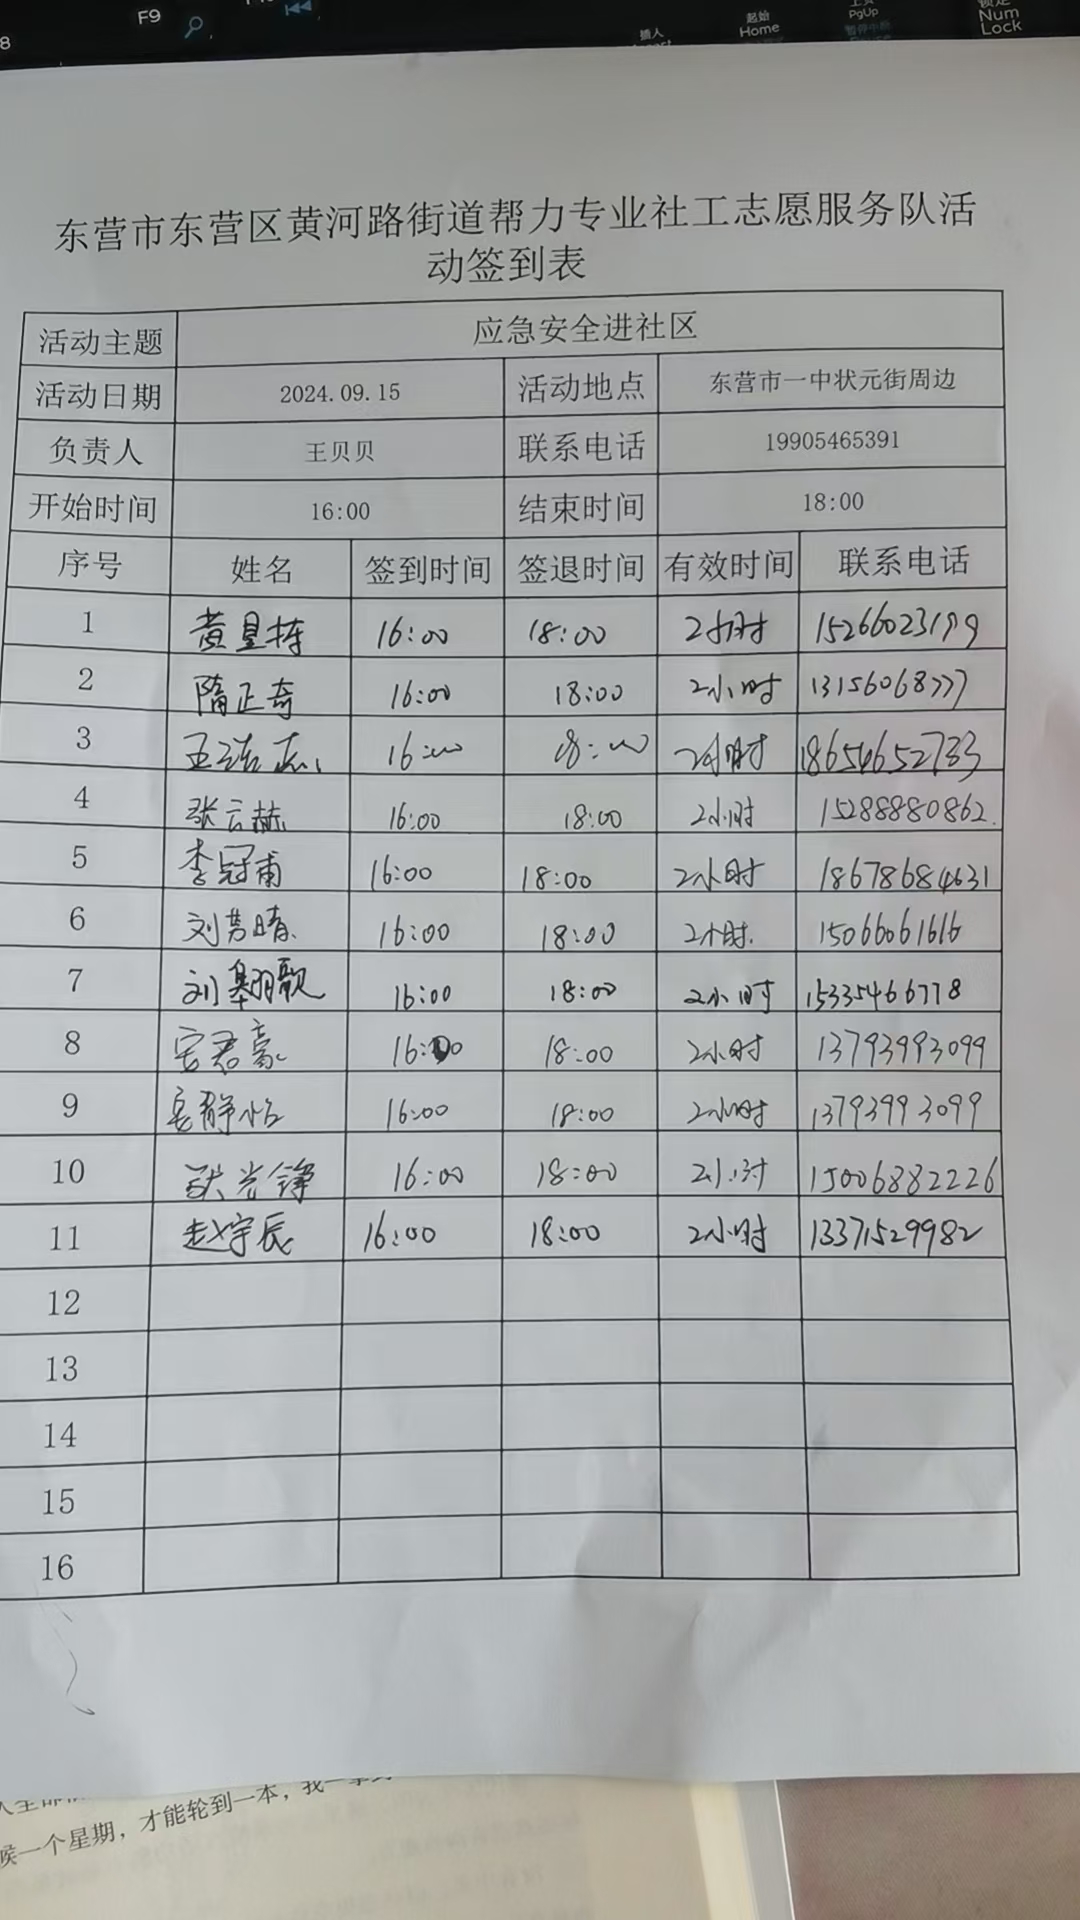 F9
8
插入
起始
Home
PgUp
Num
Lock
东营市东营区黄河路街道帮力专业社工志愿服务队活
动签到表
活动主题 应急安全进社区
活动日期 2024.09.15 活动地点 东营市一中状元街周边
负责人 王贝贝 联系电话 19905465391
开始时间 16:00 结束时间 18:00
序号 姓名 签到时间 签退时间 有效时间 联系电话
1 黄星栋 16:00 18:00 2小时 15266023199
2 隋正奇 16:00 18:00 2小时 13156068777
3 16:00 18:00 2小时 18654652733
4 张云赫 16:00 18:00 2小时 15288880862.
5 李冠甫 16:00 18:00 2小时 18678684631
6 刘芳晴 16:00 18:00 2小时. 15066061616
7 刘翱歌 16:00 18:00 2小时 15335466778
8 君豪 16:00 18:00 2小时 13793993099
9 静怡 16:00 18:00 2小时 13793993099
10 光锋 16:00 18:00 2小时 15006882226
11 赵宇辰 16:00 18:00 2小时 13371529982
12
13
14
15
16
候一个星期，才能轮到一本，我一